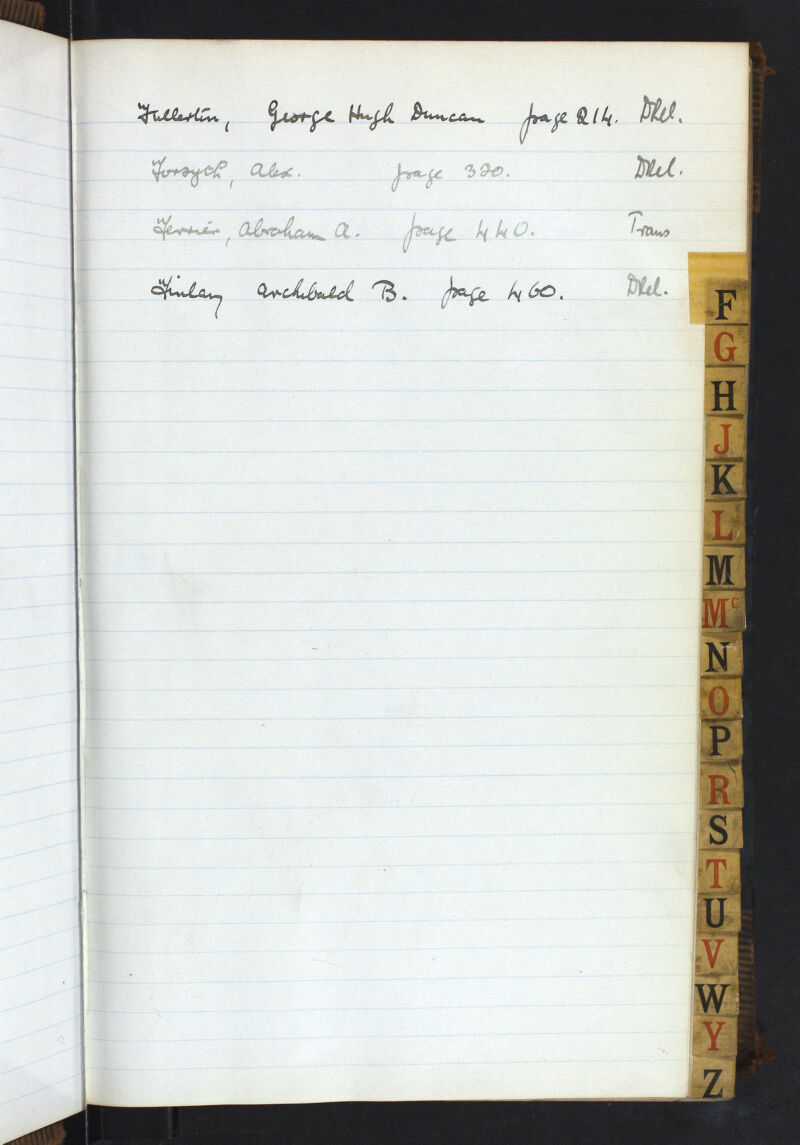 Fullerton, George Hugh Duncan page 214. Dhel.
Forsyth, Alex. page 320. Dhel.
Ferrier, Abraham A. page 440. Trans
Finlay Archibald B. page 460. Dhel.
F
G
H
J
K
L
M
Mc
N
O
P
R
S
T
U
V
W
Y
Z